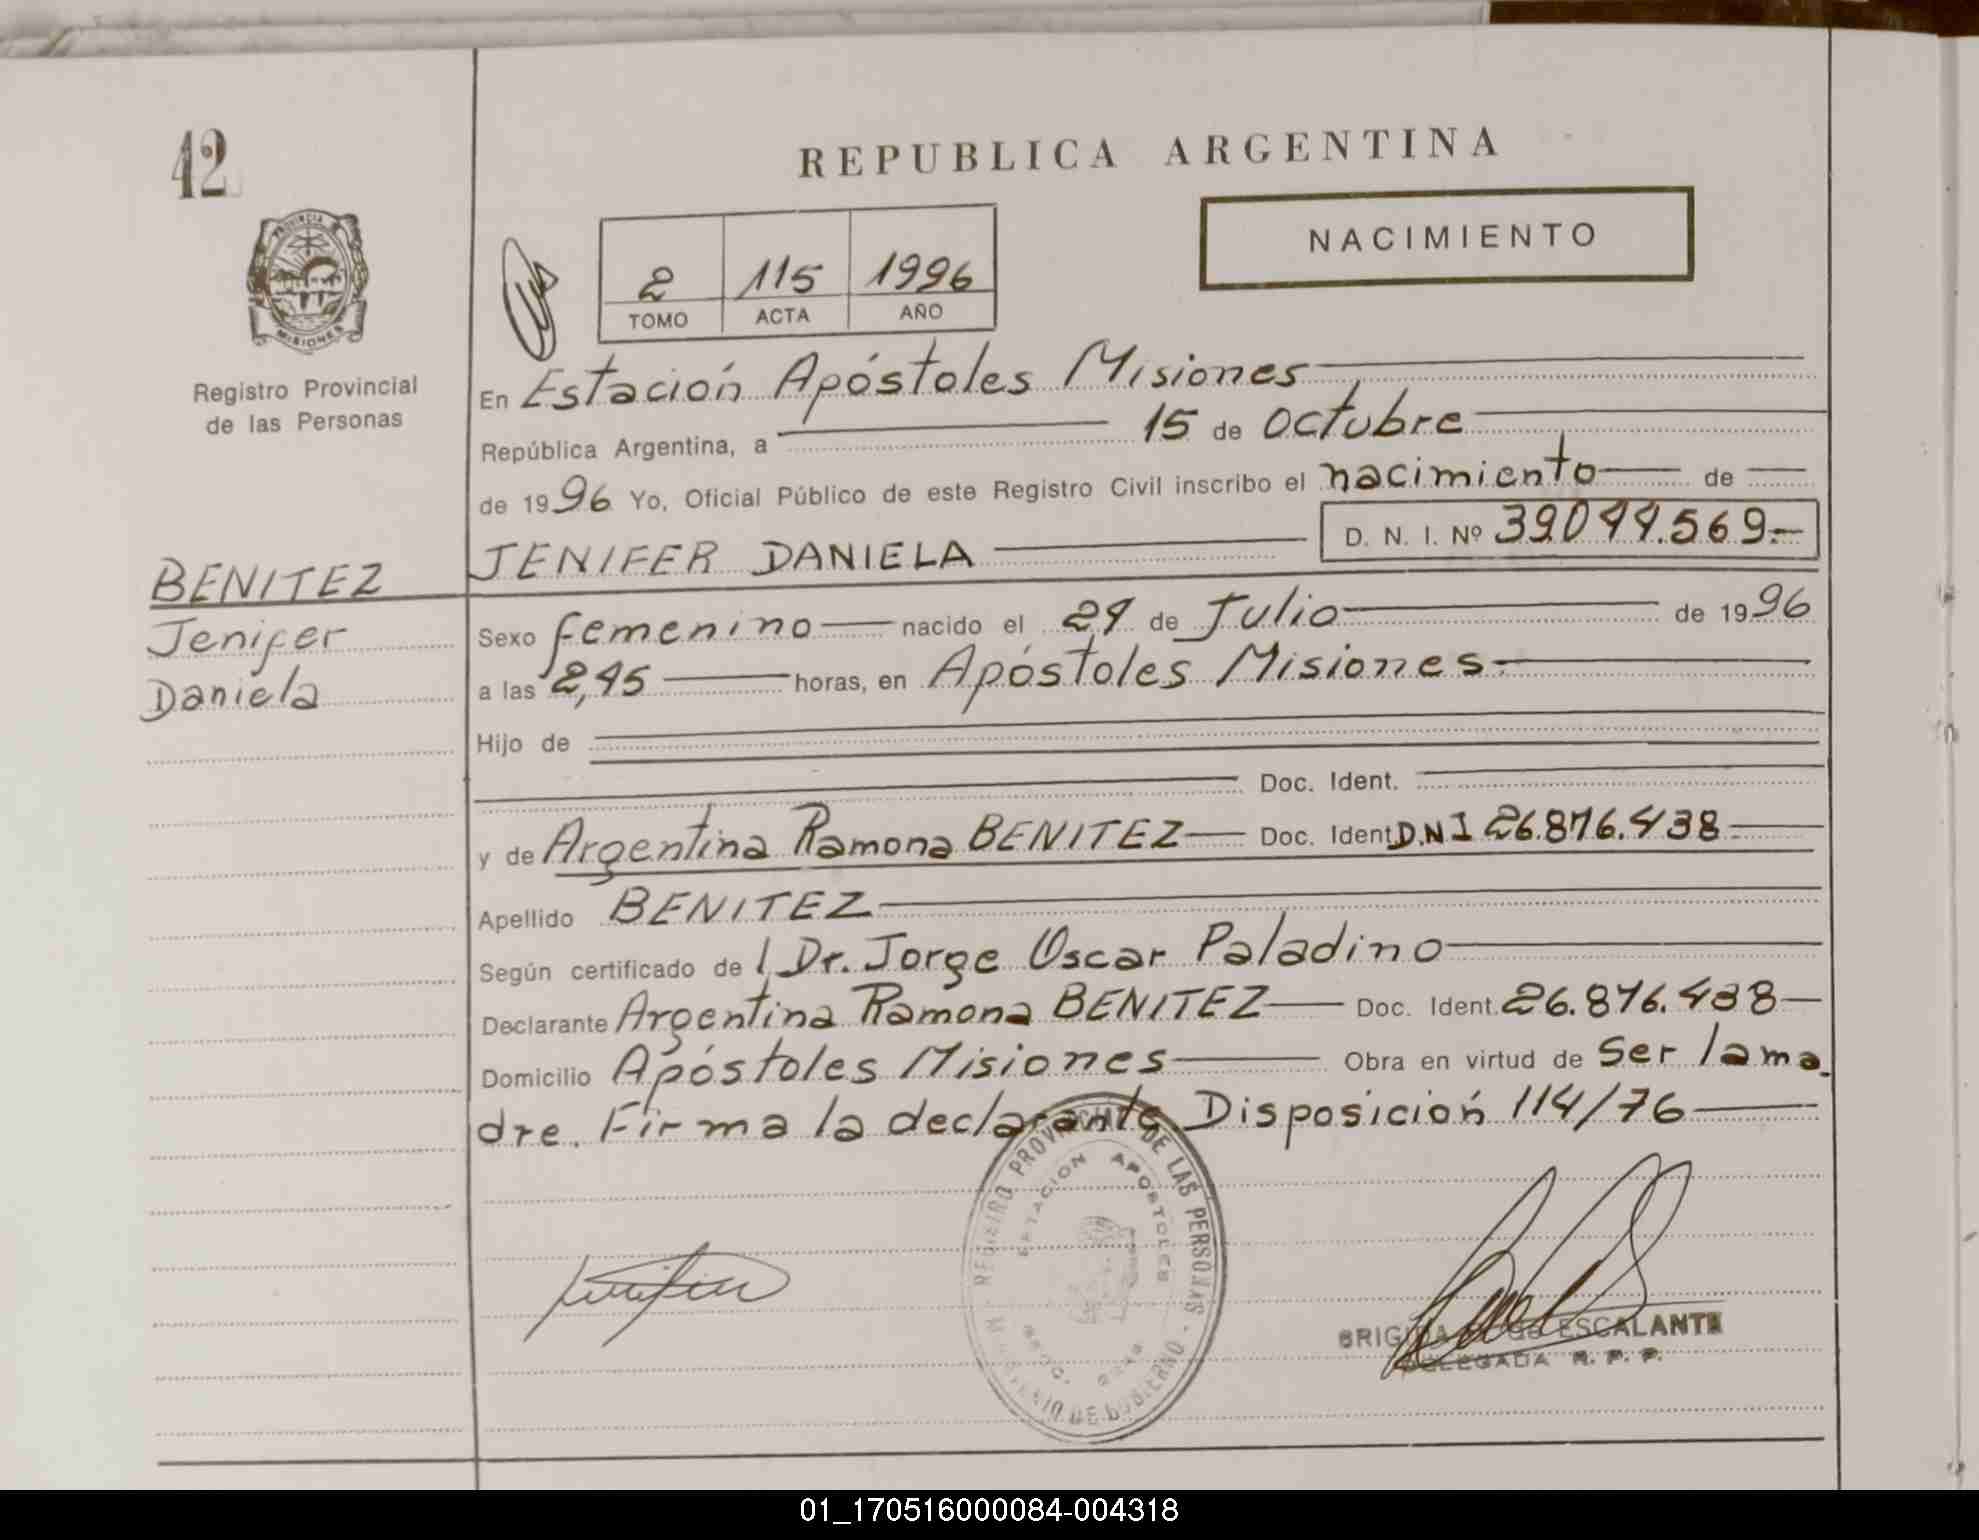 42
REPUBLICA ARGENTINA
NACIMIENTO
PROVINCIA DE
MISIONES
2 115 1996
TOMO ACTA AÑO
Registro Provincial
de las Personas
En Estación Apóstoles Misiones
República Argentina, a 15 de octubre
de 1996 Yo, Oficial Público de este Registro Civil inscribo el nacimiento de
JENIFER DANIELA D. N. I. Nº 39.044.569.-
BENITEZ
Jenifer
Daniela
Sexo femenino nacido el 24 de Julio de 1996
a las 2,45 horas, en Apóstoles Misiones.
Hijo de
Doc. Ident.
y de Argentina Ramona BENITEZ Doc. Ident. D.N.I 26.876.438
Apellido BENITEZ
Según certificado de l Dr. Jorge Oscar Paladino
Declarante Argentina Ramona BENITEZ Doc. Ident. 26.876.438
Domicilio Apóstoles Misiones Obra en virtud de Ser la ma
dre. Firma la declarante Disposición 114/76
REGISTRO PROVINCIAL DE LAS PERSONAS
ESTACION APOSTOLES
MINISTERIO DE GOBIERNO
ESCALANTE
DELEGADA R. P. P.
01_170516000084-004318